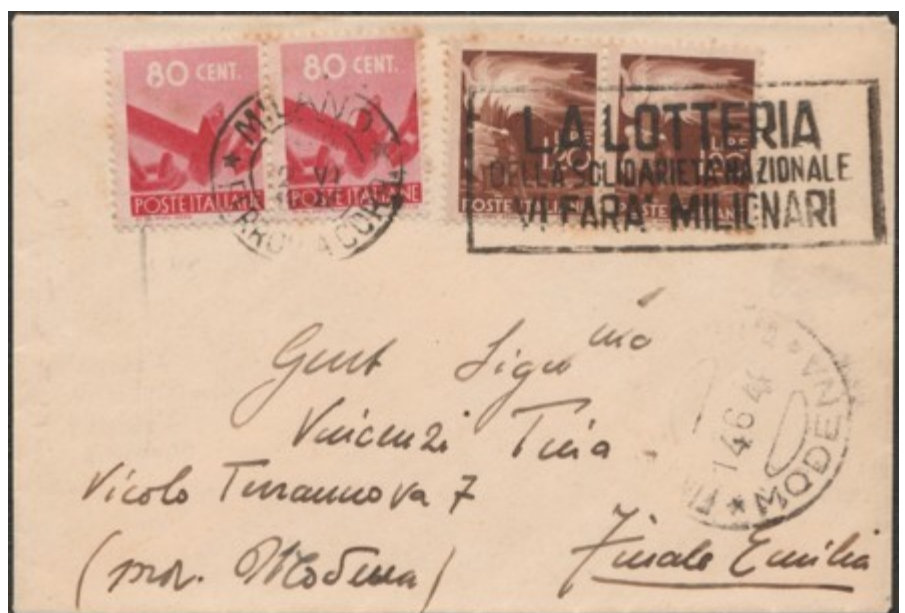 80 CENT. 80 CENT.
POSTE ITALIANE POSTE ITALIANE
MILANO
FERROVIA CORR.
LIRE 1,20 LIRE
POSTE ITALIANE POSTE ITALIANE
LA LOTTERIA
DELLA SOLIDARIETÀ NAZIONALE
VI FARÀ MILIONARI
Gent Sigᵐᵃ
Vincenzi Tina
Vicolo Terranova 7
(prov. Modena)
Finale Emilia
14 6 4
* MODENA *